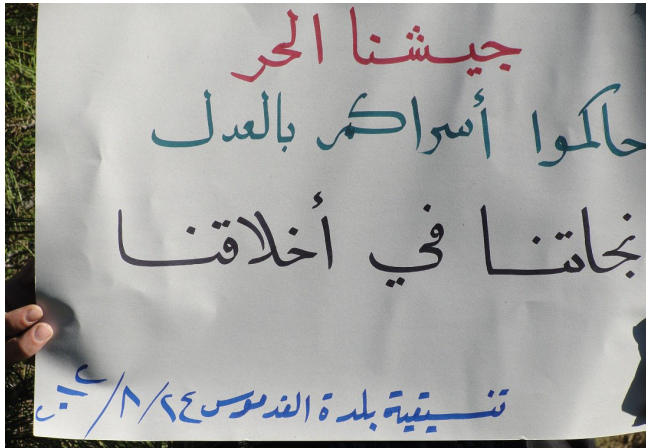 جيشنا الحر
حاكموا أسراكم بالعدل
نجاتنا في أخلاقنا
تنسيقية بلدة القدموس ٢٤/٨/